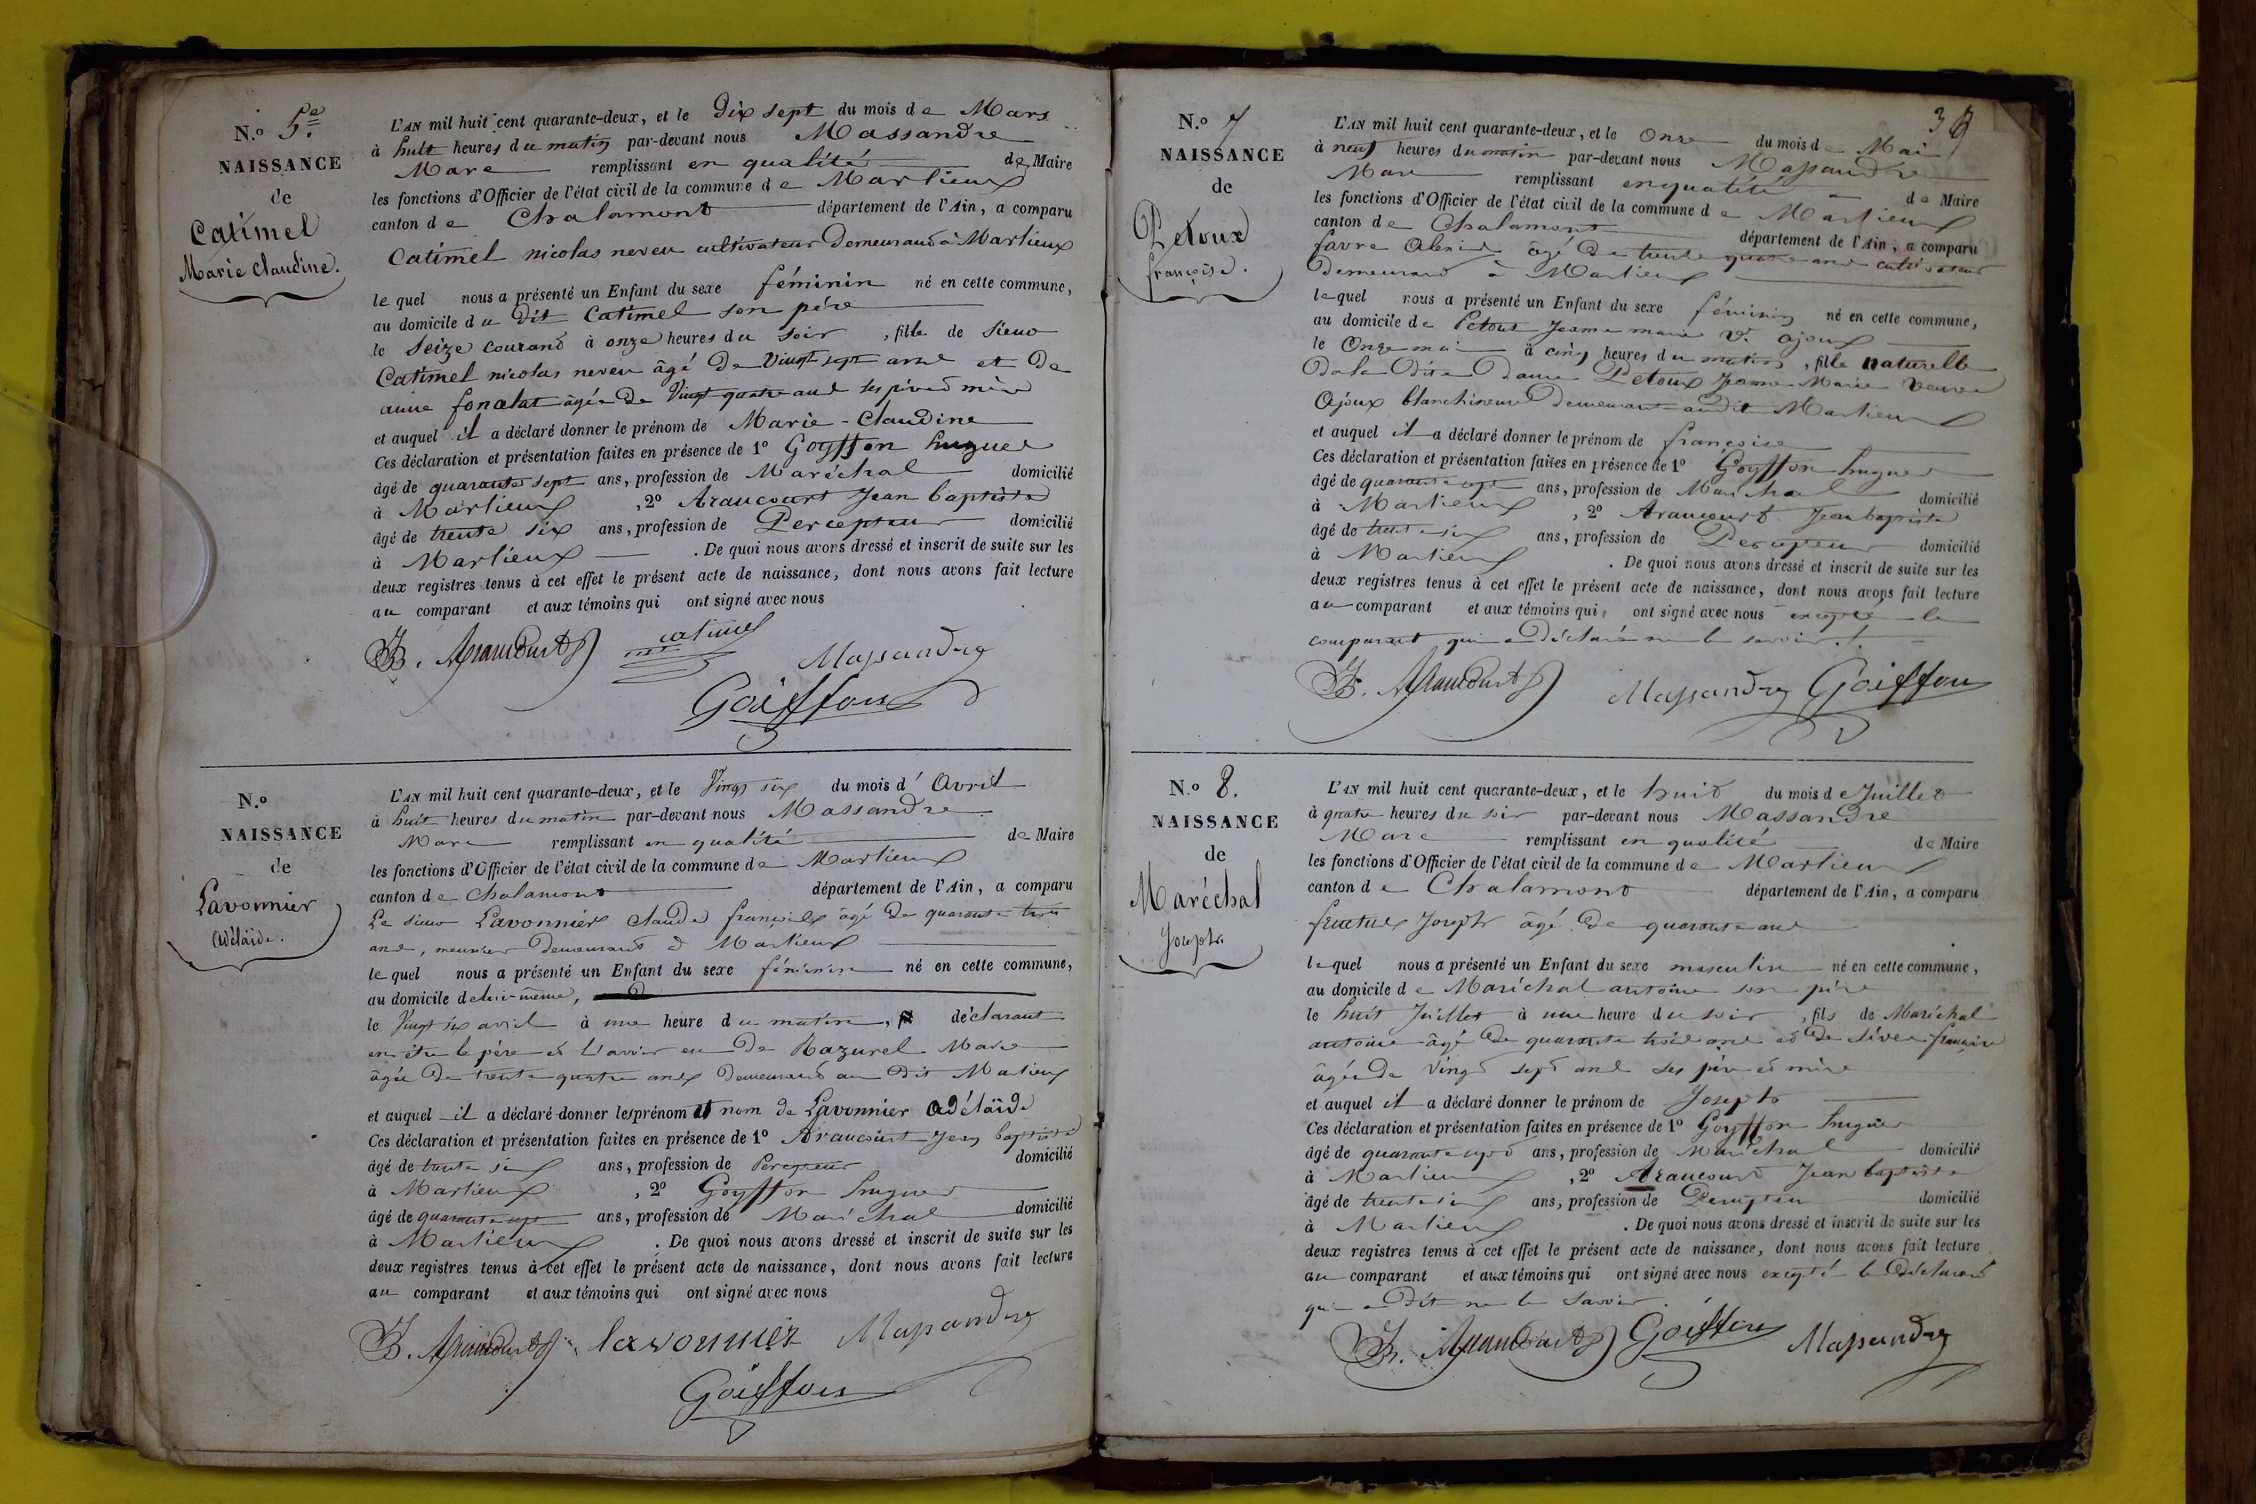 N.o 5e
NAISSANCE
de
Catimel
Marie Claudine.
L'AN mil huit cent quarante-deux, et le Dix sept du mois de Mars
à huit heures du matin par-devant nous Massandre
Marc remplissant en qualité de Maire
les fonctions d'Officier de l'état civil de la commune de Marlieux
canton de Chalamont département de l'Ain, a comparu
Catimel nicolas neveu cultivateur Demeurant à Marlieux
le quel nous a présenté un Enfant du sexe féminin né en cette commune,
au domicile du dit Catimel son père
le Seize courant à onze heures du soir , fille de Sieur
Catimel nicolas neveu âgé De Vingt sept ans et De
âgée De Vingt quatre ans ses père et mère
et auquel il a déclaré donner le prénom de Marie-Claudine
Ces déclaration et présentation faites en présence de 1o Goyffon hugues
âgé de quarante sept ans, profession de Maréchal domicilié
à Marlieux , 2o Araucourt Jean baptiste
âgé de trente six ans, profession de Percepteur domicilié
à Marlieux . De quoi nous avons dressé et inscrit de suite sur les
deux registres tenus à cet effet le présent acte de naissance, dont nous avons fait lecture
au comparant et aux témoins qui ont signé avec nous
JB. Araucourt catimel
Massandre
Goiffon
N.o
NAISSANCE
de
Lavonnier
Adélaïde.
L'AN mil huit cent quarante-deux, et le Vingt six du mois d' Avril
à huit heures du matin par-devant nous Massandre
Marc remplissant en qualité de Maire
les fonctions d'Officier de l'état civil de la commune de Marlieux
canton de Chalamont département de l'Ain, a comparu
Le sieur Lavonnier claude françois âgé De quarante trois
ans, meunier demeurant à Marlieux
le quel nous a présenté un Enfant du sexe féminin né en cette commune,
au domicile de lui-même,
le Vingt six avril à une heure du matin, déclarant
en être le père et l'avoir eu De Razurel Marie
âgée De trente quatre ans demeurant au Dit Marlieux
et auquel il a déclaré donner les prénom et nom de Lavonnier Adélaïde
Ces déclaration et présentation faites en présence de 1o Araucourt Jean baptiste
âgé de trente six ans, profession de Percepteur domicilié
à Marlieux , 2o Goyffon hugues
âgé de quarante sept ans, profession de Maréchal domicilié
à Marlieux . De quoi nous avons dressé et inscrit de suite sur les
deux registres tenus à cet effet le présent acte de naissance, dont nous avons fait lecture
au comparant et aux témoins qui ont signé avec nous
JB. Araucourt lavonnier Massandre
Goiffon
N.o 7
NAISSANCE
de
Petoux
françoise.
L'AN mil huit cent quarante-deux, et le Onze du mois de Mai
à neuf heures du matin par-devant nous Massandre
Marc remplissant en qualité de Maire
les fonctions d'Officier de l'état civil de la commune de Marlieux
canton de Chalamont département de l'Ain, a comparu
favre âgé De trente quatre ans cultivateur
Demeurant à Marlieux
le quel nous a présenté un Enfant du sexe féminin né en cette commune,
au domicile de Petoux Jeanne marie Ve. ajoux
le Onze mai à cinq heures du matin , fille naturelle
De la dite Dame Petoux Jeanne Marie veuve
Ajoux blanchisseuse Demeurant audit Marlieux
et auquel il a déclaré donner le prénom de françoise
Ces déclaration et présentation faites en présence de 1o Goyffon hugues
âgé de quarante sept ans, profession de Maréchal domicilié
à Marlieux , 2o Araucourt Jean baptiste
âgé de trente six ans, profession de Percepteur domicilié
à Marlieux . De quoi nous avons dressé et inscrit de suite sur les
deux registres tenus à cet effet le présent acte de naissance, dont nous avons fait lecture
au comparant et aux témoins qui ont signé avec nous excepté le
comparant qui a déclaré ne le savoir
JB. Araucourt Massandre Goiffon
N.o 8.
NAISSANCE
de
Maréchal
Joseph
L'AN mil huit cent quarante-deux, et le huit du mois de Juillet
à quatre heures du soir par-devant nous Massandre
Marc remplissant en qualité de Maire
les fonctions d'Officier de l'état civil de la commune de Marlieux
canton de Chalamont département de l'Ain, a comparu
Joseph âgé De quarante ans
le quel nous a présenté un Enfant du sexe masculin né en cette commune,
au domicile de Maréchal antoine son père
le huit Juillet à une heure du soir , fils de Maréchal
antoine âgé De quarante trois ans et De françoise
âgée De Vingt sept ans ses père et mère
et auquel il a déclaré donner le prénom de Joseph
Ces déclaration et présentation faites en présence de 1o Goyffon hugues
âgé de quarante sept ans, profession de Maréchal domicilié
à Marlieux , 2o Araucourt Jean baptiste
âgé de trente six ans, profession de Percepteur domicilié
à Marlieux . De quoi nous avons dressé et inscrit de suite sur les
deux registres tenus à cet effet le présent acte de naissance, dont nous avons fait lecture
au comparant et aux témoins qui ont signé avec nous excepté le Déclarant
qui a Dit ne le savoir.
JB. Araucourt Goiffon Massandre